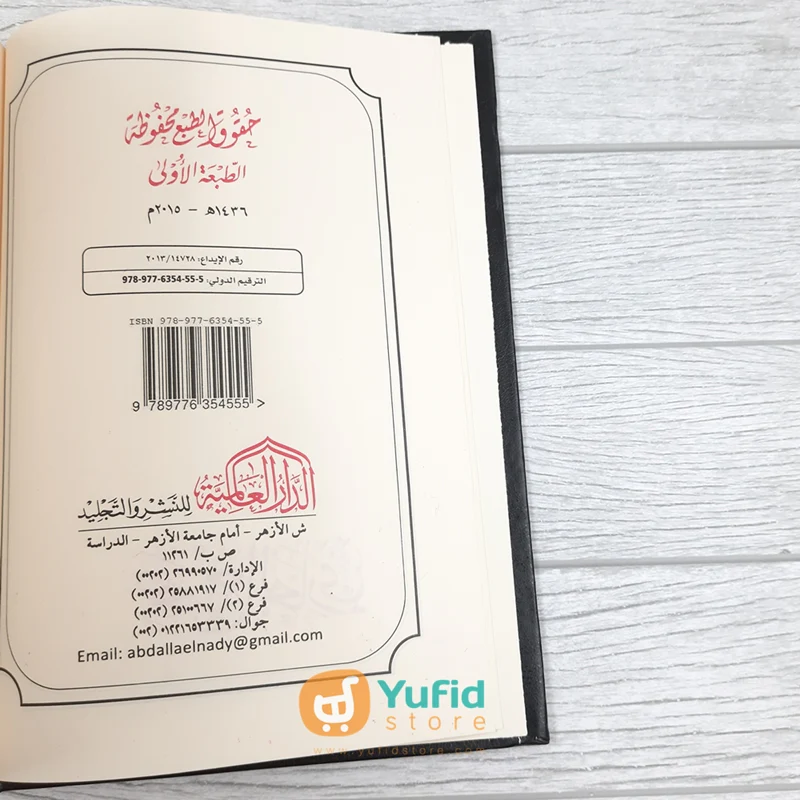 حقوق الطبع محفوظة
الطبعة الأولى
١٤٣٦هـ - ٢٠١٥م
رقم الإيداع: ٢٠١٣/١٤٧٢٨
الترقيم الدولي: 978-977-6354-55-5
ISBN 978-977-6354-55-5
9 789776 354555 >
الدار العالمية للنشر والتجليد
ش الأزهر - أمام جامعة الأزهر - الدراسة
ص ب/ ١١٢٦١
الإدارة/ ٢٦٩٩٠٥٧٠ (٠٠٢٠٢)
فرع (١)/ ٢٥٨٨١٩١٧ (٠٠٢٠٢)
فرع (٢)/ ٢٥١٠٠٦٦٧ (٠٠٢٠٢)
جوال: ٠١٢٢١٦٥٣٣٣٩ (٠٠٢)
Email: abdallaelnady@gmail.com
Yufid
store
www.yufidstore.com